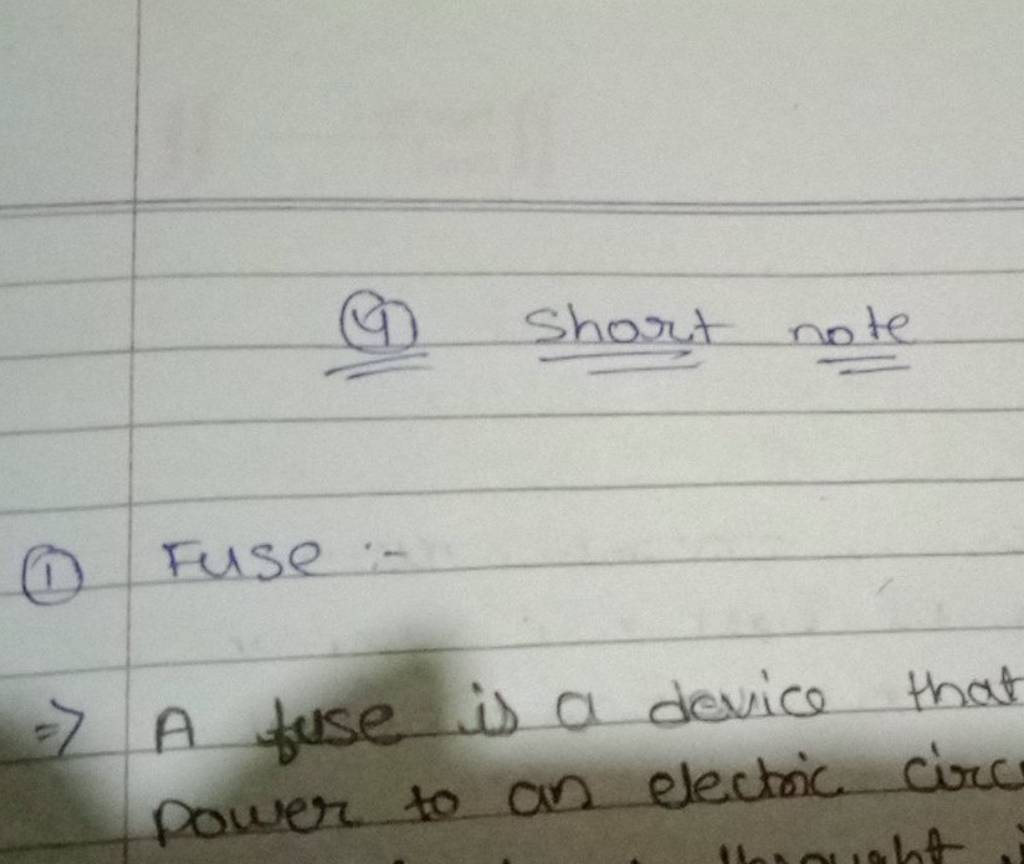 ④ Short note
① Fuse :-
⇒ A fuse is a device that
power to an electric
throught